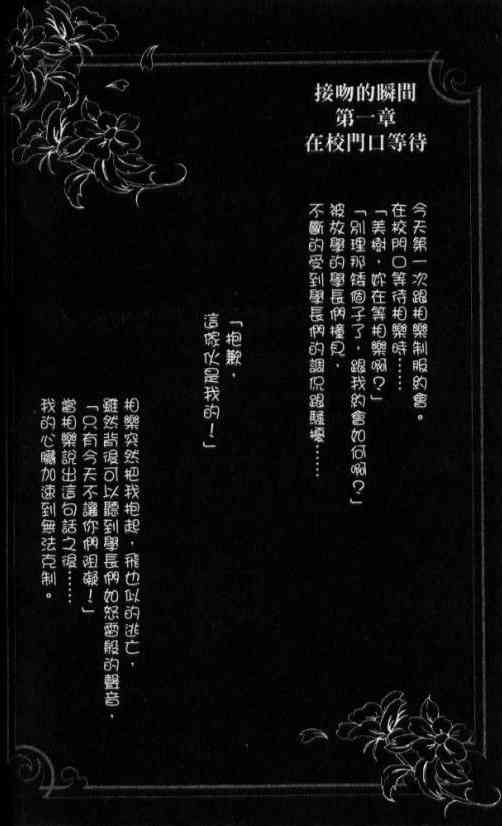 接吻的瞬間
第一章
在校門口等待
今天第一次跟相樂制服約會。
在校門口等待相樂時……
「美樹，妳在等相樂啊？」
「別理那矮個子了，跟我約會如何啊？」
被放學的學長們撞見，
不斷的受到學長們的調侃跟騷擾……
「抱歉，
這傢伙是我的！」
相樂突然把我抱起，飛也似的逃亡，
雖然背後可以聽到學長們如怒雷般的聲音，
「只有今天不讓你們阻礙！」
當相樂說出這句話之後……
我的心臟加速到無法克制。